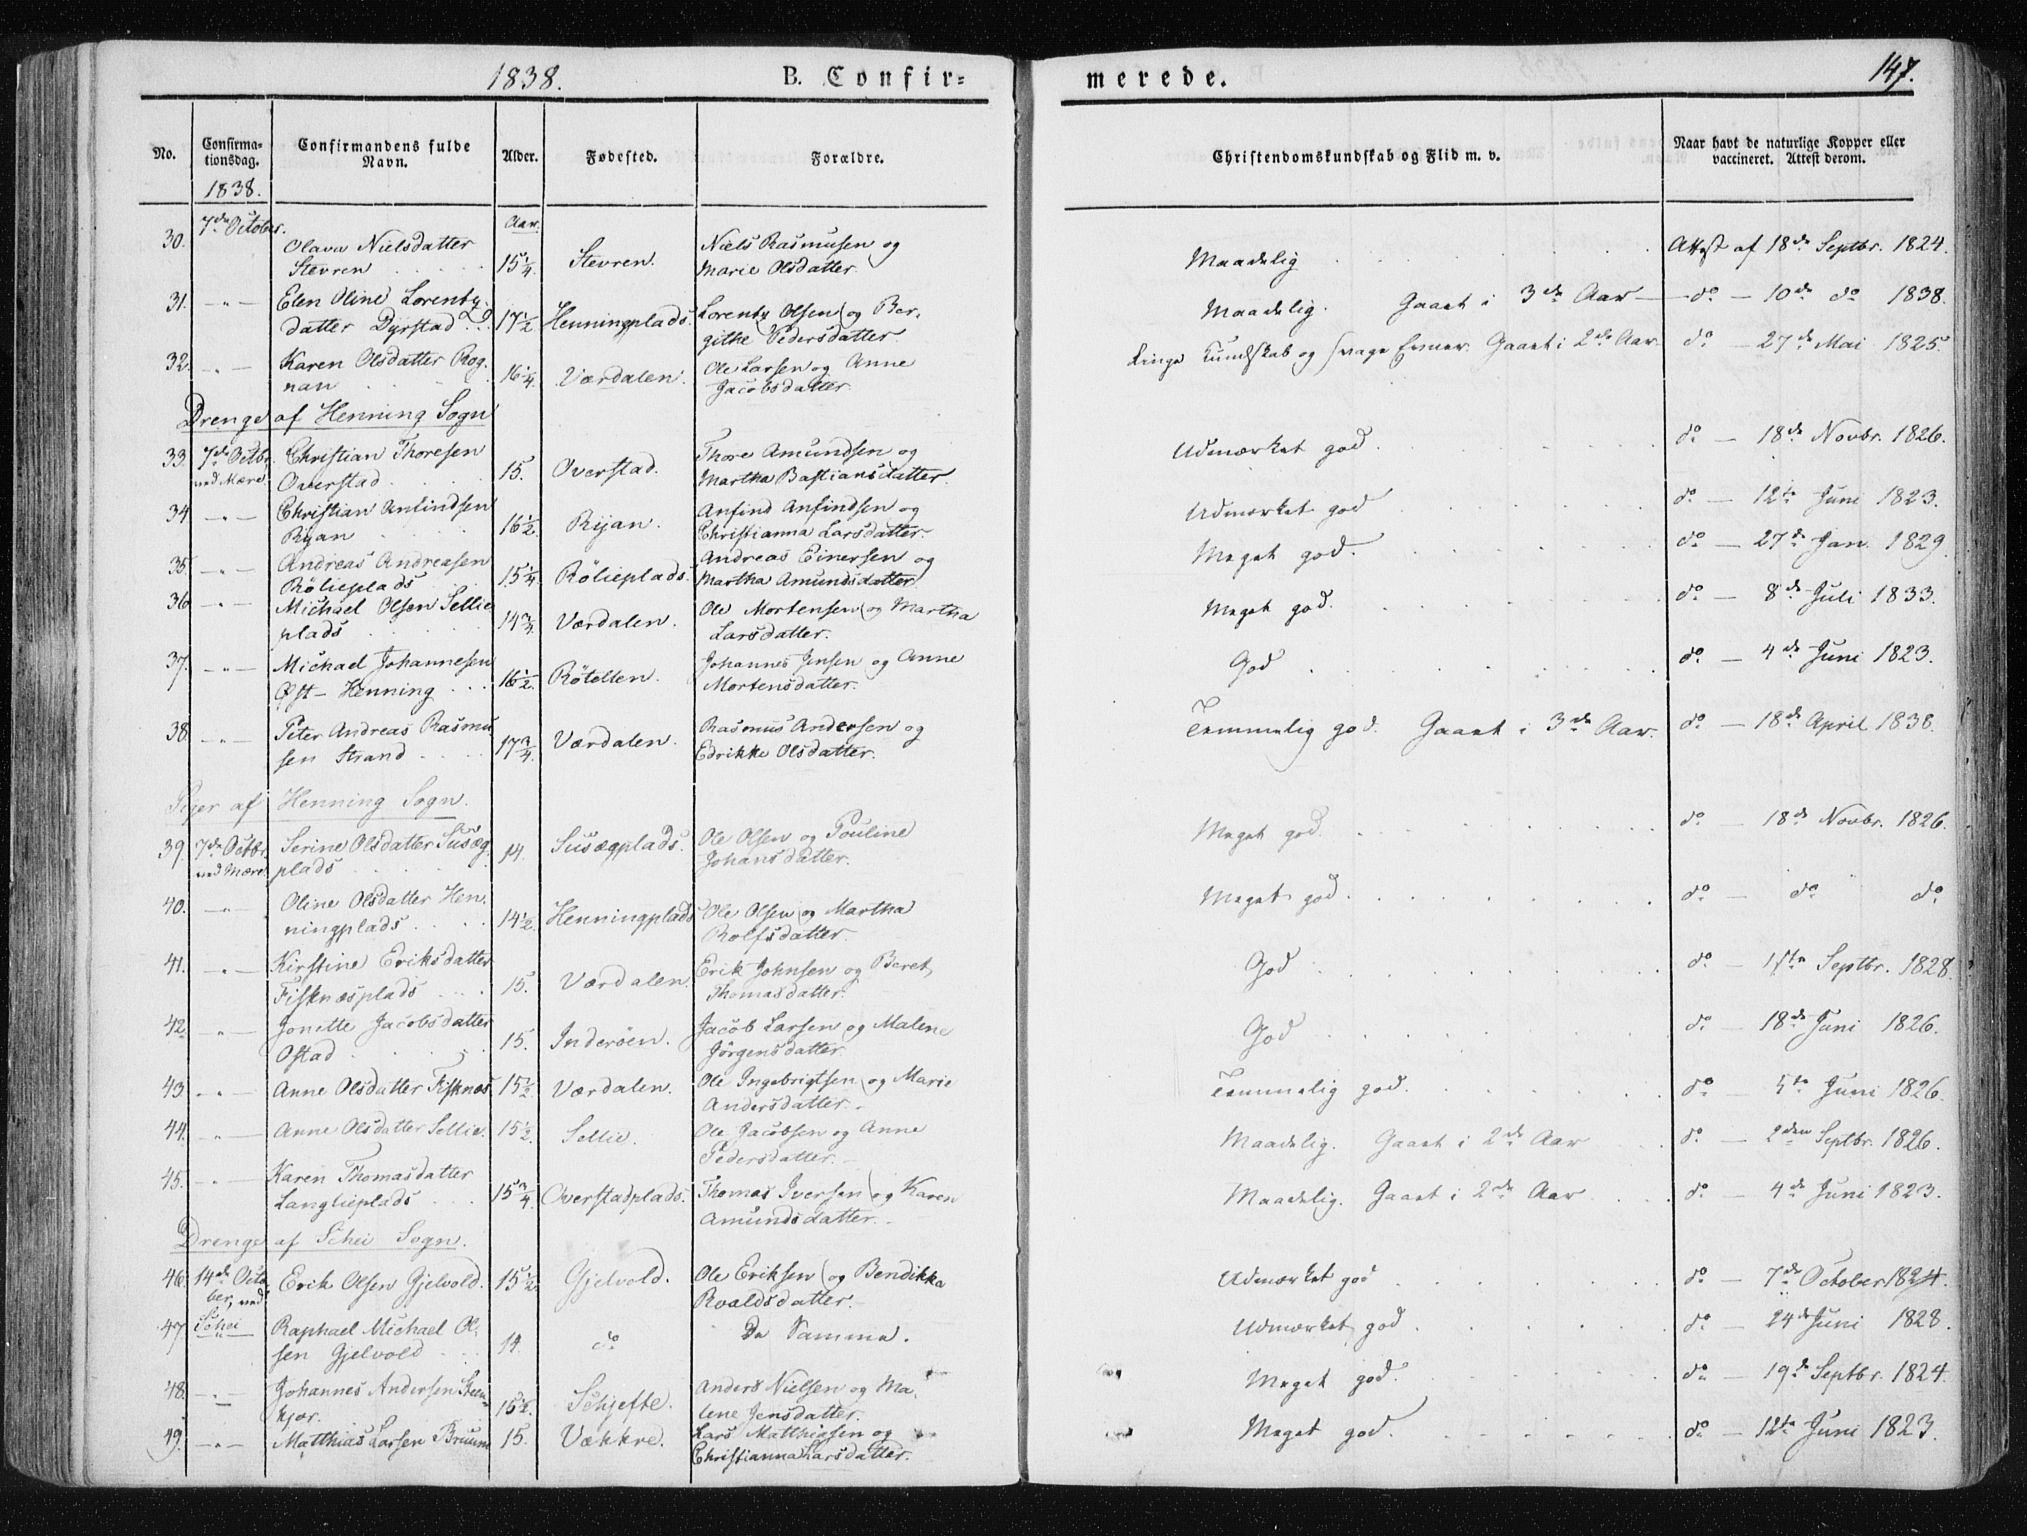 1838. B. Confir= merede. 147.
No. Confirma-tionsdag. Confirmandens fulde Navn. Alder. Fødested. Forældre. Christendomskundskab og Flid m. v. Naar havt de naturlige Kopper eller vaccineret. Attest derom.
1838.
7de October. Aar.
30. Olava Nielsdatter Stevren 15 1/4. Stevren. Niels Rasmusen og Marie Olsdatter. Maadelig Attest af 18de Septbr. 1824.
31. -"- Elen Oline Lorentz-datter Dyrstad 17 1/2 Henningplads. Lorentz Olsen og Ber-githe Pedersdatter. Maadelig. Gaaet i 3de Aar do - 10de do 1838.
32. -"- Karen Olsdatter Rog-nan 16 1/4. Værdalen. Ole Larsen og Anne Jacobsdatter. Ringe Kundskab og svage Evner. Gaaet i 2de Aar. do - 27de Mai 1825.
Drenge af Henning Sogn
33. 7de Octbr. ved Mære. Christian Thoresen Overstad 15. Overstad. Thore Amundsen og Martha Bastiansdatter. Udmærket god. do - 18de Novbr. 1826.
34 -"- Christian Anfindsen Ryan 16 1/2. Ryan. Anfind Anfindsen og Christianna Larsdatter. Udmærket god do - 12te Juni 1823.
35. -"- Andreas Andreasen Rölieplads 15 1/4 Rölieplads. Andreas Einersen og Martha Amundsdatter Meget god. do - 27de Jan. 1829.
36 -"- Michael Olsen Sellie plads 14 3/4. Værdalen. Ole Mortensen og Martha Larsdatter. Meget god. do - 8de Juli 1833.
37. -"- Michael Johannesen Øst-Henning 16 1/2. Rötelten. Johannes Jensen og Anne Mortensdatter. God do - 4de Juni 1823.
38. -"- Peter Andreas Rasmu sen Strand 17 3/4. Værdalen. Rasmus Andersen og Edrikke Olsdatter. Temmelig god. Gaaet i 3de Aar. do - 18de April 1838.
Piger af Henning Sogn.
39. 7de Octbr. ved Mære. Serine Olsdatter Susæg-plads 14. Susægplads. Ole Olsen og Pouline Johansdatter. Meget god. do - 18de Novbr. 1826.
40. -"- Oline Olsdatter Hen-ningplads 14 1/2. Henningplads Ole Olsen og Martha Rolfsdatter. Meget god. do - do do
41. -"- Kirstine Eriksdatter Fisknæsplads 15. Værdalen. Erik Johnsen og Beret Thomasdatter. God do - 1ste Septbr. 1828.
42. -"- Jonette Jacobsdatter Ostad 15. Inderöen. Jacob Larsen og Malene Jörgensdatter God do - 18de Juni 1826.
43 -"- Anne Olsdatter Fisknæs 15 1/2. Værdalen. Ole Ingebrigtsen og Marie Andersdatter. Temmelig god. do - 5te Juni 1826.
44. -"- Anne Olsdatter Sellie. 15 1/2. Sellie. Ole Jacobsen og Anne Pedersdatter. Maadelig. Gaaet i 2de Aar do - 2den Septbr. 1826.
45. -"- Karen Thomasdatter Langlieplads 15 3/4 Overstadplads. Thomas Iversen og Karen Amundsdatter. Maadelig. Gaaet i 2de Aar do - 4de Juni 1823.
Drenge af Schei Sogn.
46. 14de Octo ber, ved Schei Erik Olsen Gjelvold. 15 1/2. Gjelvold. Ole Eriksen og Bendikka Roaldsdatter. Udmærket god do - 7de October 1824.
47 -"- Raphael Michael Ol-sen Gjelvold 14. do De Samme. Udmærket god do - 24de Juni 1828.
48. -"- Johannes Andersen Steen-kjær. 15 1/2. Schjefte. Anders Nielsen og Ma-lene Jensdatter. Meget god. do - 19de Septbr. 1824.
49. -"- Matthias Larsen Bruum 15. Vækkre. Lars Matthiasen og Christianna Larsdatter. Meget god. do - 12te Juni 1823.